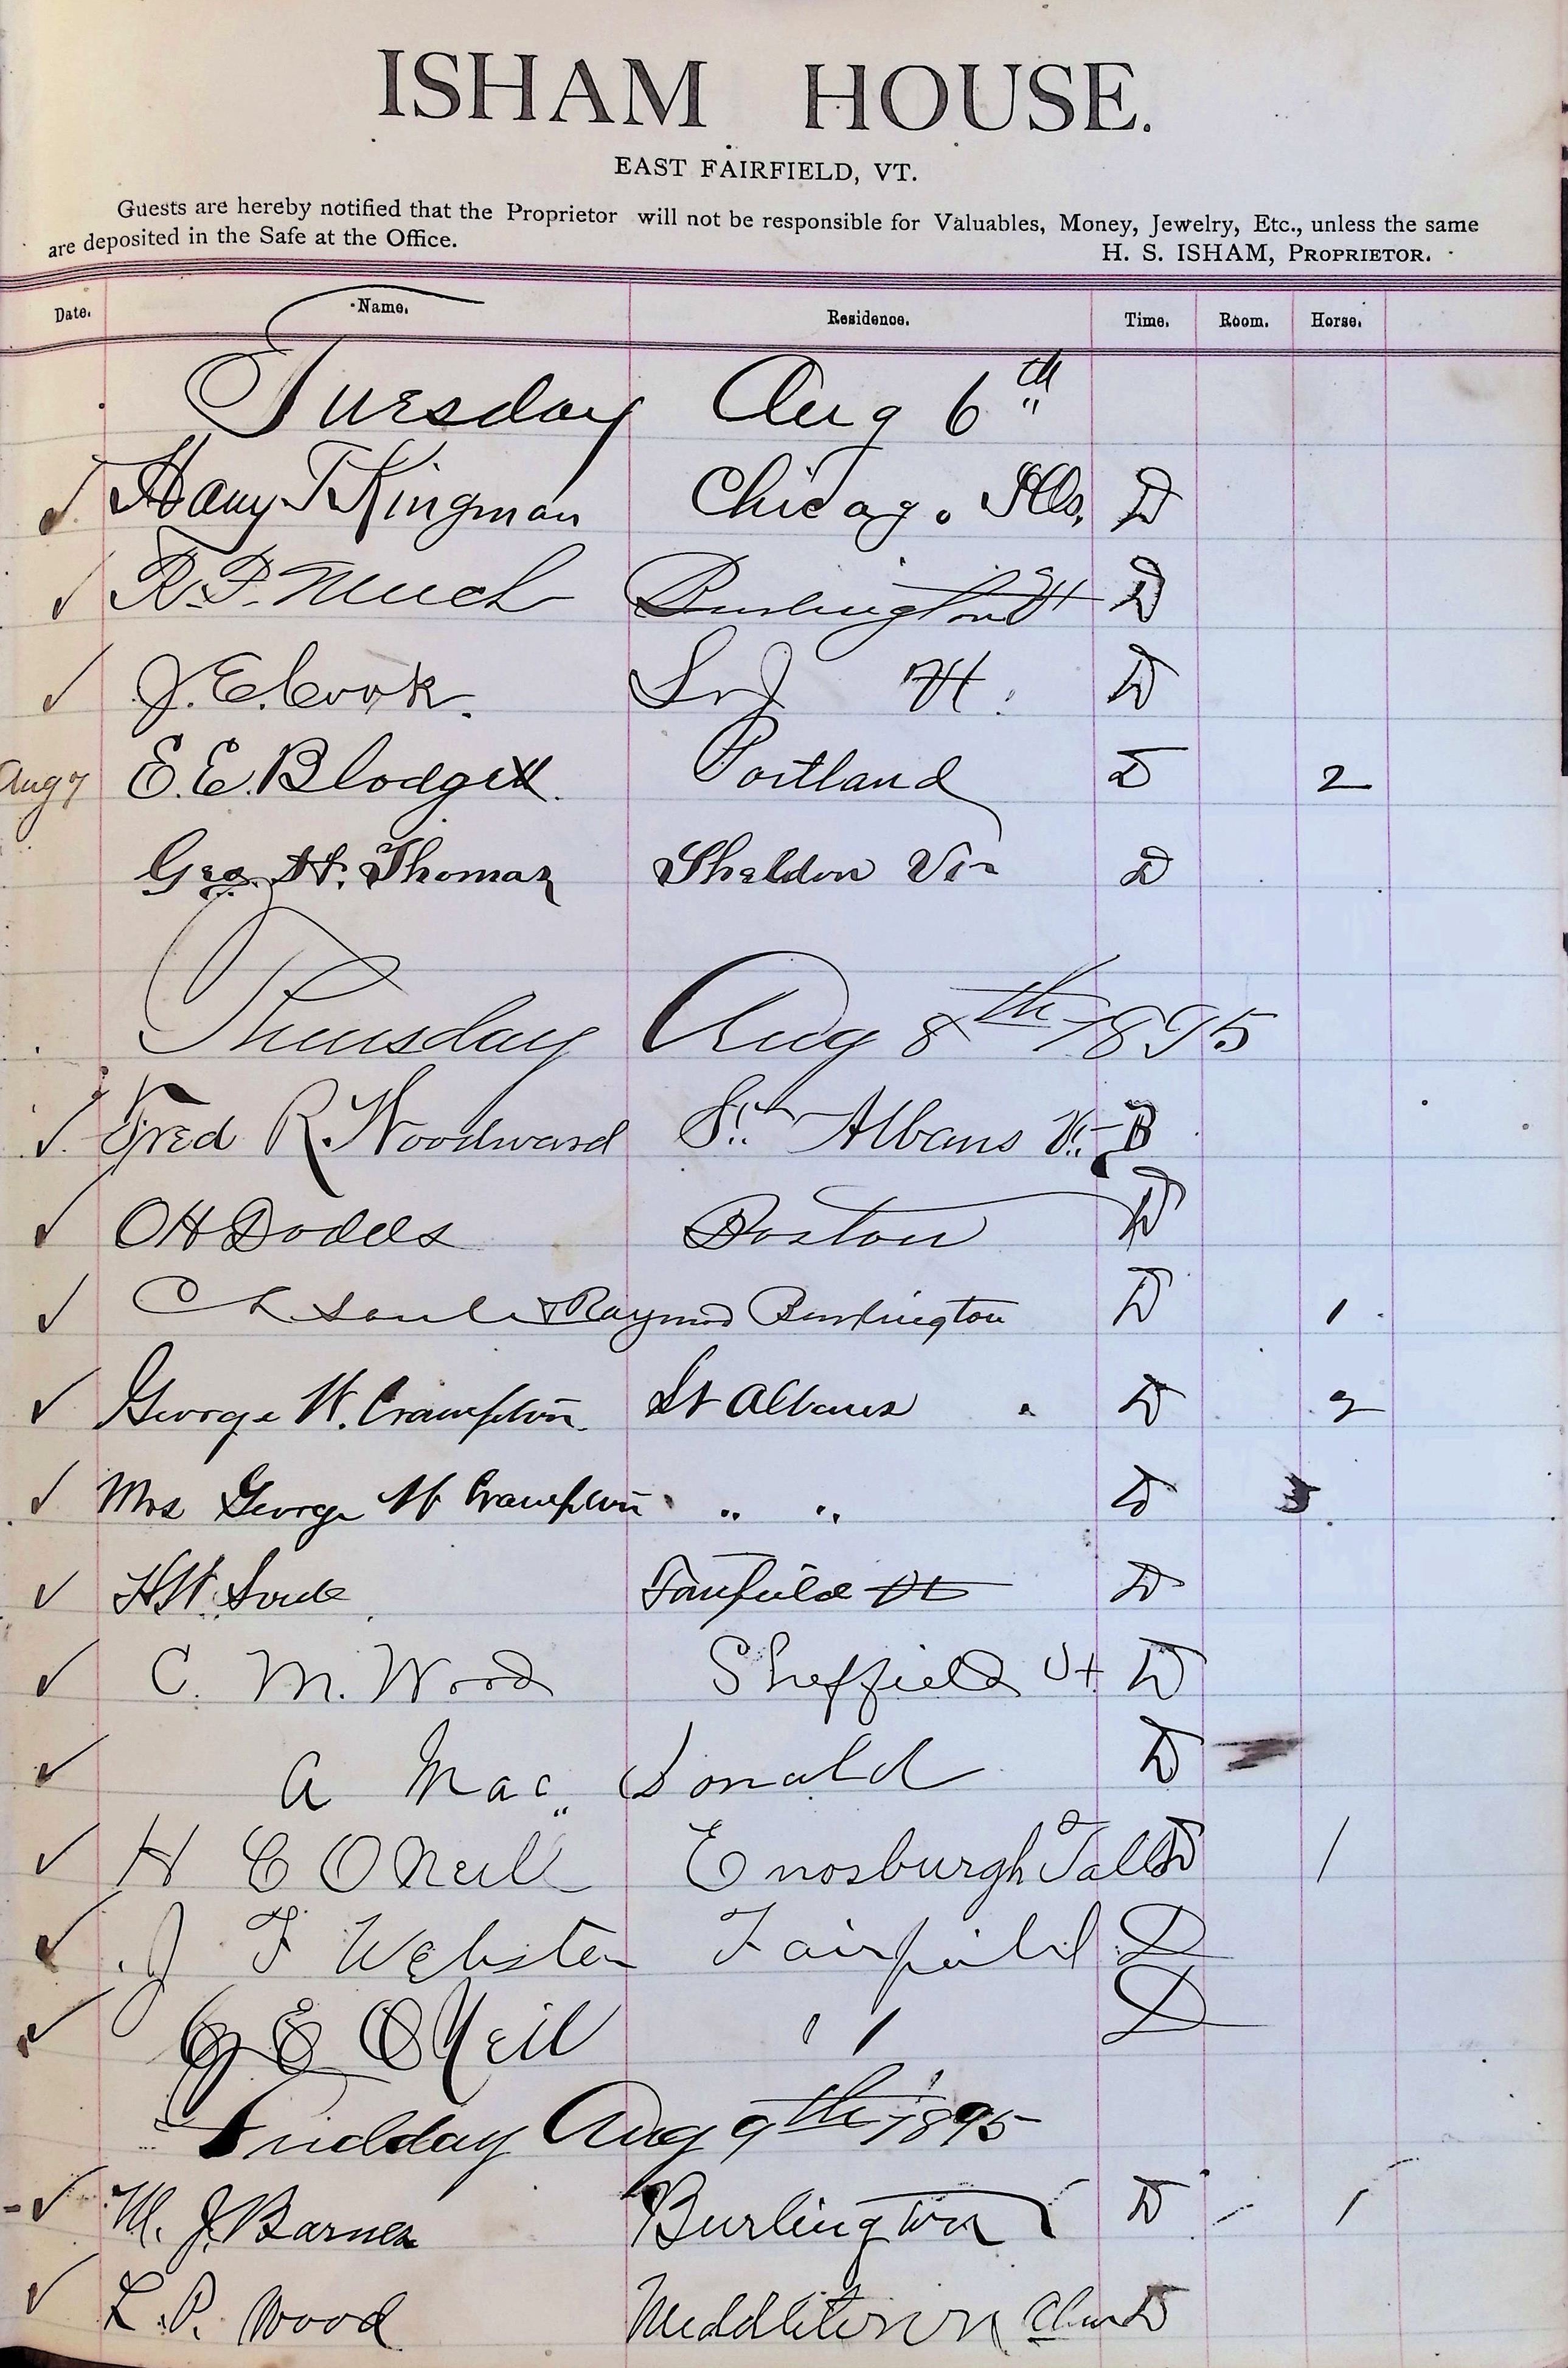 ISHAM HOUSE.
EAST FAIRFIELD, VT.
Guests are hereby notified that the Proprietor will not be responsible for Valuables, Money, Jewelry, Etc., unless the same
are deposited in the Safe at the Office.
H. S. ISHAM, PROPRIETOR.
Date. Name. Residence. Time. Room. Horse.
Tuesday Aug 6th
✓ Harry T Kingman Chicago Ills. D
✓ R. P. Burlington Vt D
✓ J. E. Cook. Vt. D
Aug 7 E. E. Blodgett. Portland D 2
Geo. H. Thomas Sheldon D
Thursday Aug 8th 1895
✓ Fred R. Woodward St. Albans Vt. B
✓ OH Dodds Boston D
✓ C L Soule & Raymond Burlington D 1
✓ George W. Crampton St Albans D 2
✓ Mrs George W Crampton " " D
✓ H W. Soule Fairfield Vt D
✓ C. M. Wood Sheffield Vt D
✓ A Mac Donald D
✓ H C ONeill Enosburgh Falls D 1
✓ J F Webster Fairfield D
✓ E ONeil " D
Fridday Aug 9th 1895
✓ M. J. Barnes Burlington D 1
✓ L. P. Wood Middletown D